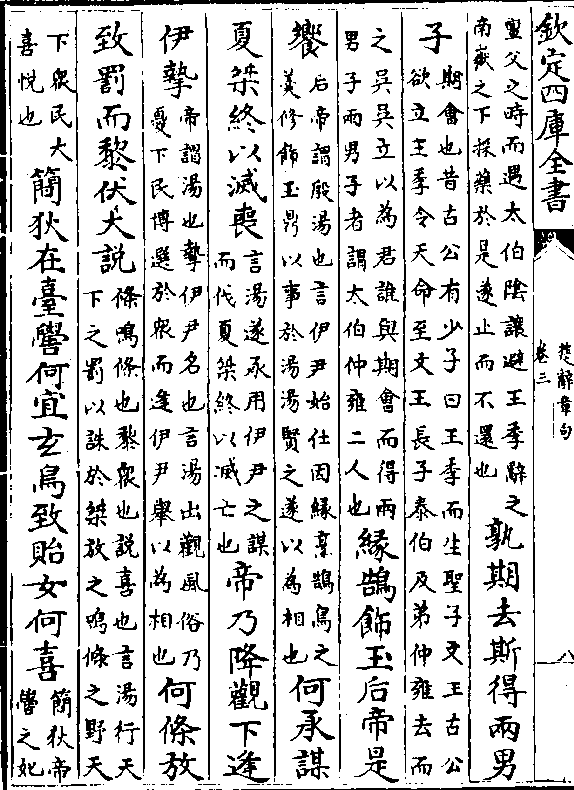 欽定四庫全書
楚辭章句
卷三
八
亶父之時而遇太伯陰讓避王季辭之
南嶽之下採藥於是遂止而不還也
孰期去斯得兩男
子
期會也昔古公有少子曰王季而生聖子文王古公
欲立王季令天命至文王長子泰伯及弟仲雍去而
之吳吳立以為君誰與期會而得兩
男子兩男子者謂太伯仲雍二人也
緣鵠飾玉后帝是
饗
后帝謂殷湯也言伊尹始仕因緣烹鵠鳥之
羮修飾玉鼎以事於湯湯賢之遂以為相也
何承謀
夏桀終以滅喪
言湯遂承用伊尹之謀
而伐夏桀終以滅亡也
帝乃降觀下逢
伊摯
帝謂湯也摯伊尹名也言湯出觀風俗乃
憂下民博選於衆而逢伊尹舉以為相也
何條放
致罰而黎伏大説
條鳴條也黎衆也説喜也言湯行天
下之罰以誅於桀放之鳴條之野天
下衆民大
喜悅也
簡狄在臺嚳何宜玄鳥致貽女何喜
簡狄帝
嚳之妃